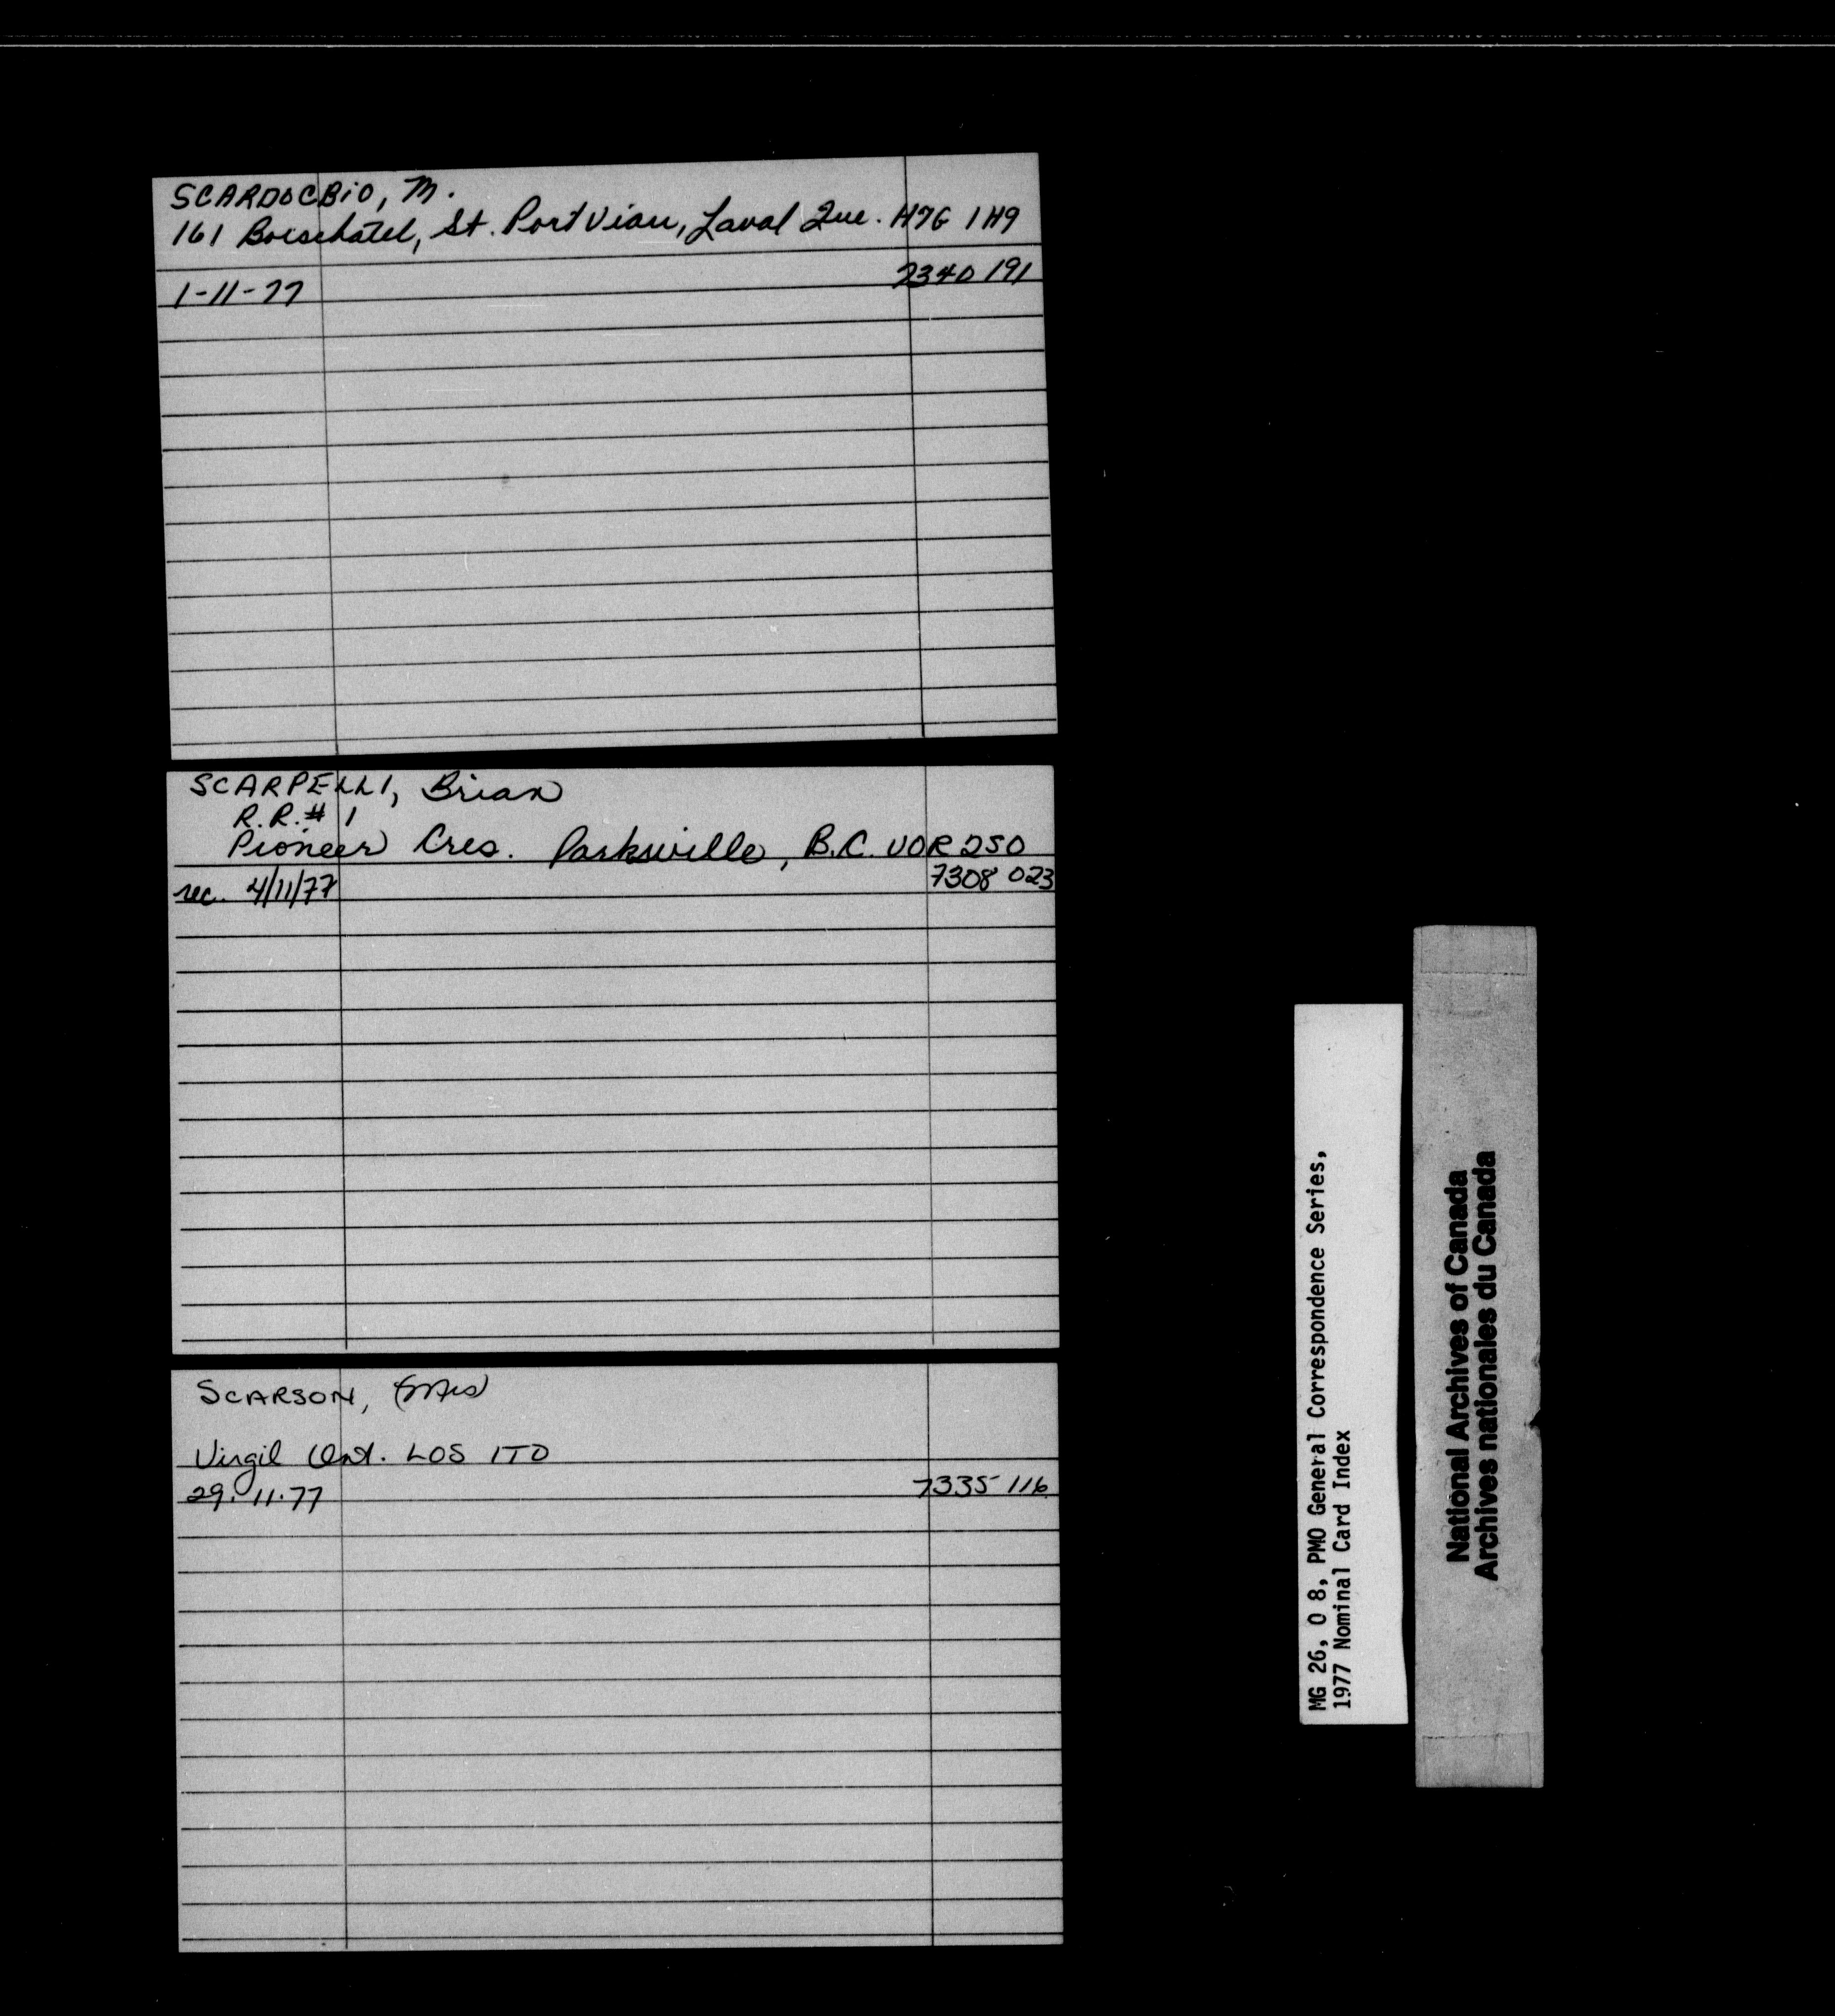 SCARDOCBIO, M.
161 Boischatel, St. Port Viau, Laval Que. H7G 1H9
1-11-77 7340 191
SCARPELLI, Brian
R.R. # 1
Pioneer Cres. Parksville, B.C. V0R 2S0
rec. 4/11/77 7308 023
SCARSON, (Mrs)
Virgil Ont. L0S 1T0
29.11.77 7335 116
MG 26, O 8, PMO General Correspondence Series,
1977 Nominal Card Index
National Archives of Canada
Archives nationales du Canada